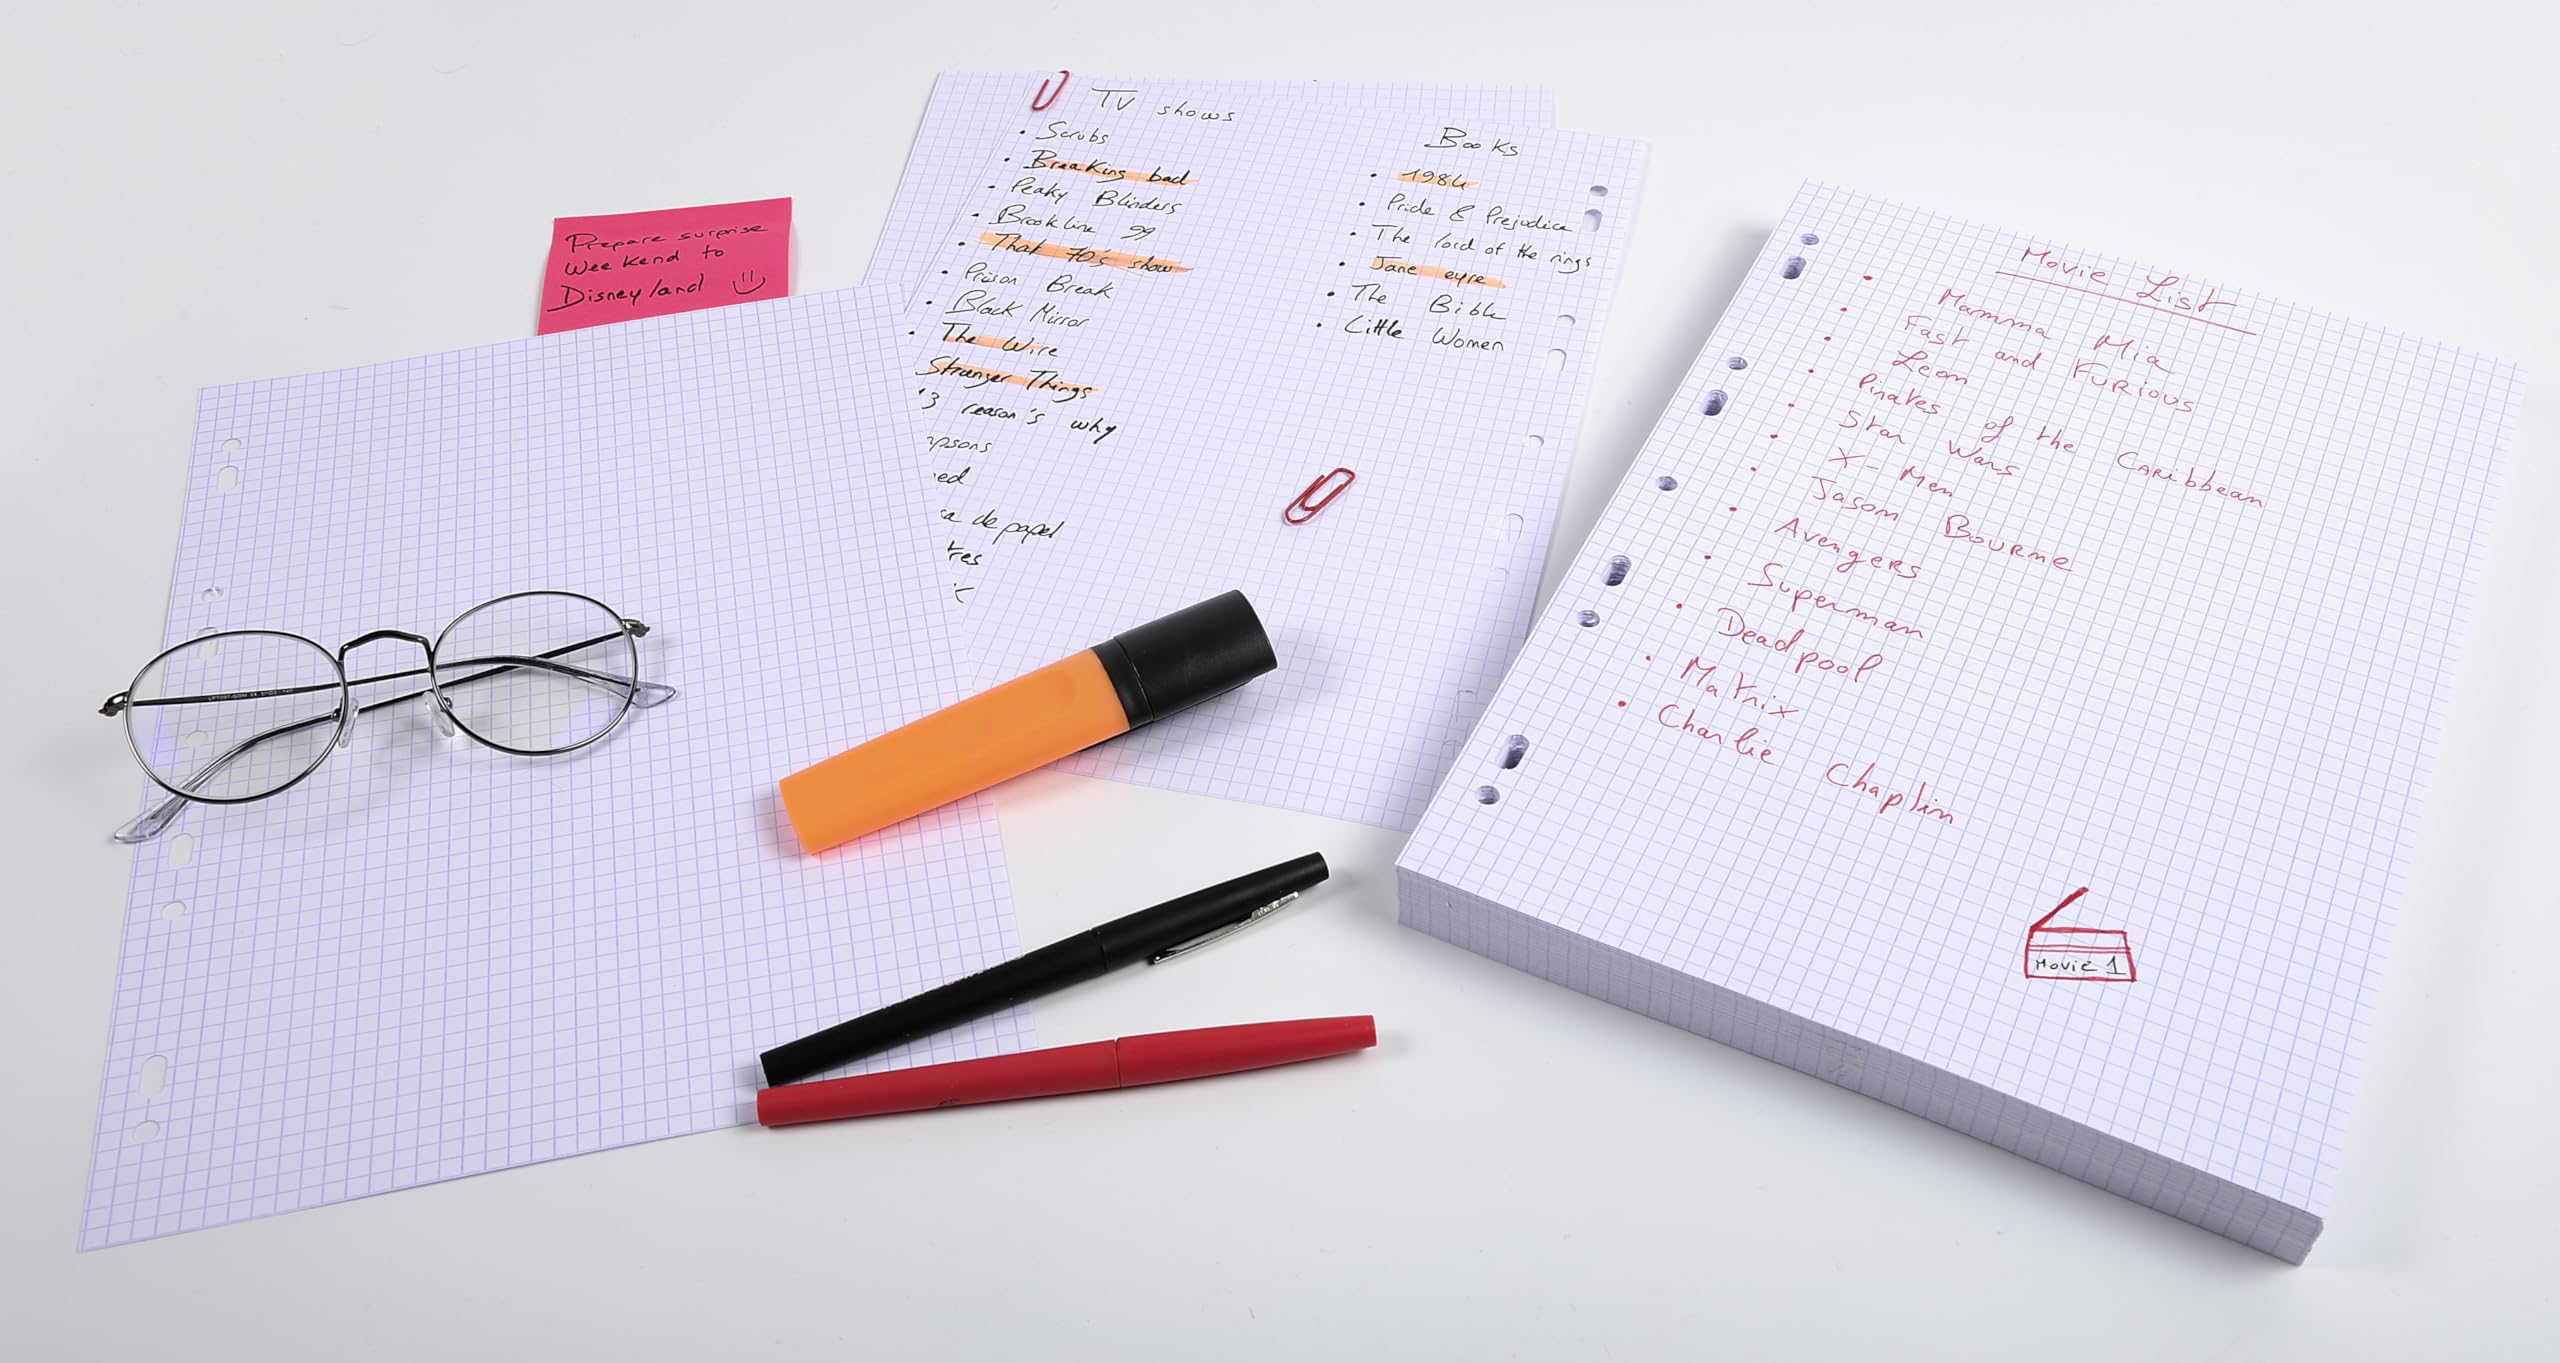 Prepare surprise
weekend to
Disneyland
TV shows
• Scrubs
• Breaking bad
• Peaky Blinders
• Brookline 99
• That 70's show
• Prison Break
• Black Mirror
• The Wire
Stranger Things
13 reason's why
psons
ed
de papel
tres
Books
• 1984
• Pride & Prejudice
• The lord of the rings
• Jane eyre
• The Bible
• Little Women
Movie List
• Mamma Mia
• Fast and FURIOUS
• Leon
• Pirates of the CARibbean
• Star Wars
• X-Men
• Jason Bourne
• Avengers
• Superman
• Deadpool
• Matrix
• Charlie Chaplin
Movie 1